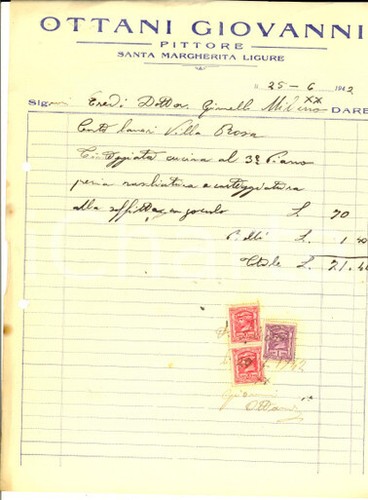 OTTANI GIOVANNI
PITTORE
SANTA MARGHERITA LIGURE
25 - 6 1942
XX
Sig. Eredi Dottor Gimelli Milano DARE
Conto lavori Villa Rosa
Tinteggiata cucina al 3° Piano
previa raschiatura e carteggiatura
alla soffitta L 70
Bolli L 1 40
Totale L 71.40
1942
Ottani